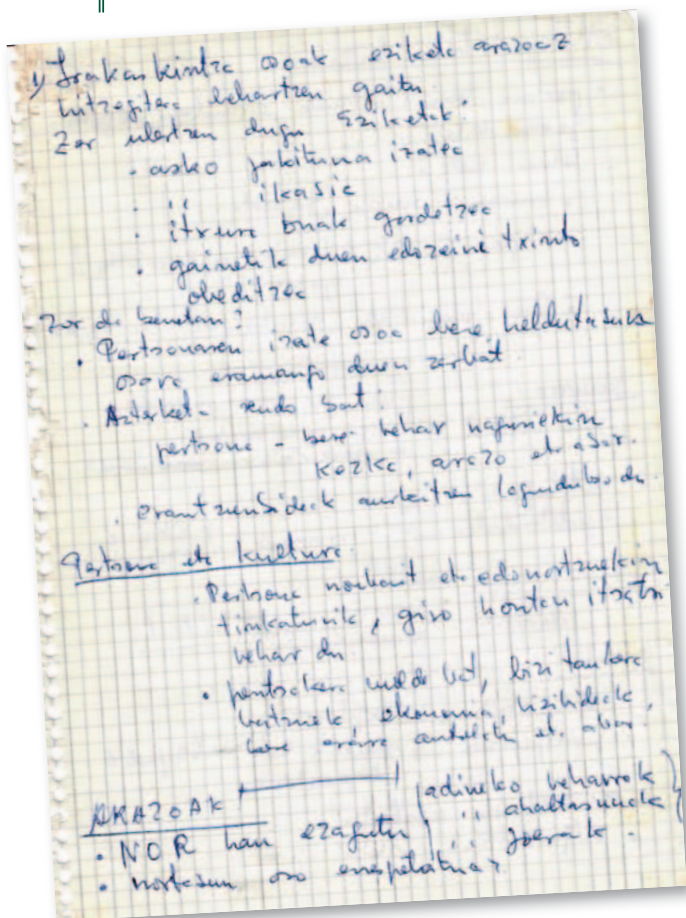 1) Irakaskintza osoak eziketa arazoaz
hitzegitera behartzen gaitu
Zer ulertzen dugu Eziketak?
. asko jakituna izatea
. ,, ikasia
. itxura onak gordetzea
. gainetik duen edozeini txintxo
obeditzea
Zer da benetan?
. Pertsonaren izate osoa bere heldutasuna
osora eramango duen zerbait
. Azterketa sendo bat:
pertsona - bere behar nagusiekin
kezka, arazo eta abar.
. erantzunbideak aurkitzen lagunduko du.
Pertsona eta kultura.
. Pertsona norbait eta edonortzuekin
tinkaturik, giro hontan itsatsi
behar du
. pentsakera molde bat, bizi taukera
batzuek, ekonomia, bizibideak,
bere eta abar.
ARAZOAK
. NOR hau ezagutu (adineko beharrak
,, ahaltasunak
,, joerak.
. nortasun oso errespetatuaz